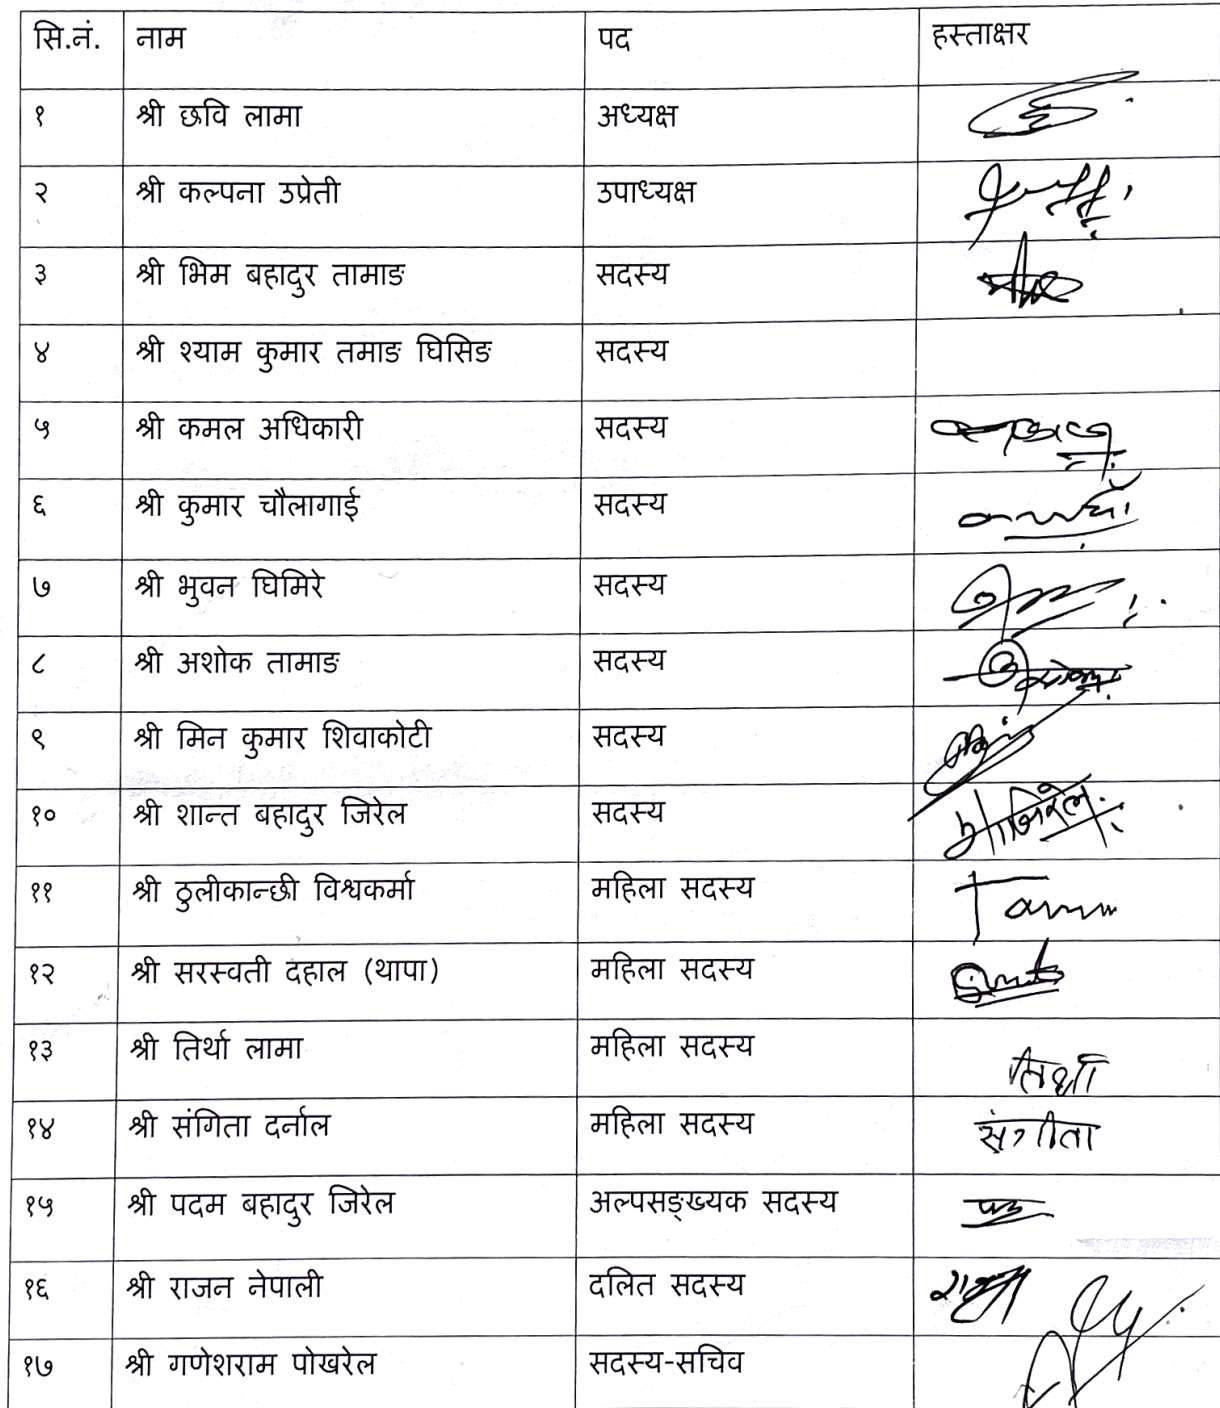 सि.नं. नाम पद हस्ताक्षर
१ श्री छवि लामा अध्यक्ष
२ श्री कल्पना उप्रेती उपाध्यक्ष
३ श्री भिम बहादुर तामाङ सदस्य
४ श्री श्याम कुमार तमाङ घिसिङ सदस्य
५ श्री कमल अधिकारी सदस्य
६ श्री कुमार चौलागाई सदस्य
७ श्री भुवन घिमिरे सदस्य
८ श्री अशोक तामाङ सदस्य
९ श्री मिन कुमार शिवाकोटी सदस्य
१० श्री शान्त बहादुर जिरेल सदस्य
११ श्री ठुलीकान्छी विश्वकर्मा महिला सदस्य
१२ श्री सरस्वती दहाल (थापा) महिला सदस्य
१३ श्री तिर्था लामा महिला सदस्य
१४ श्री संगिता दर्नाल महिला सदस्य संगीता
१५ श्री पदम बहादुर जिरेल अल्पसङ्ख्यक सदस्य
१६ श्री राजन नेपाली दलित सदस्य
१७ श्री गणेशराम पोखरेल सदस्य-सचिव